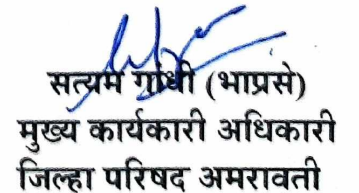 सत्यम गांधी (भाप्रसे)
मुख्य कार्यकारी अधिकारी
जिल्हा परिषद अमरावती